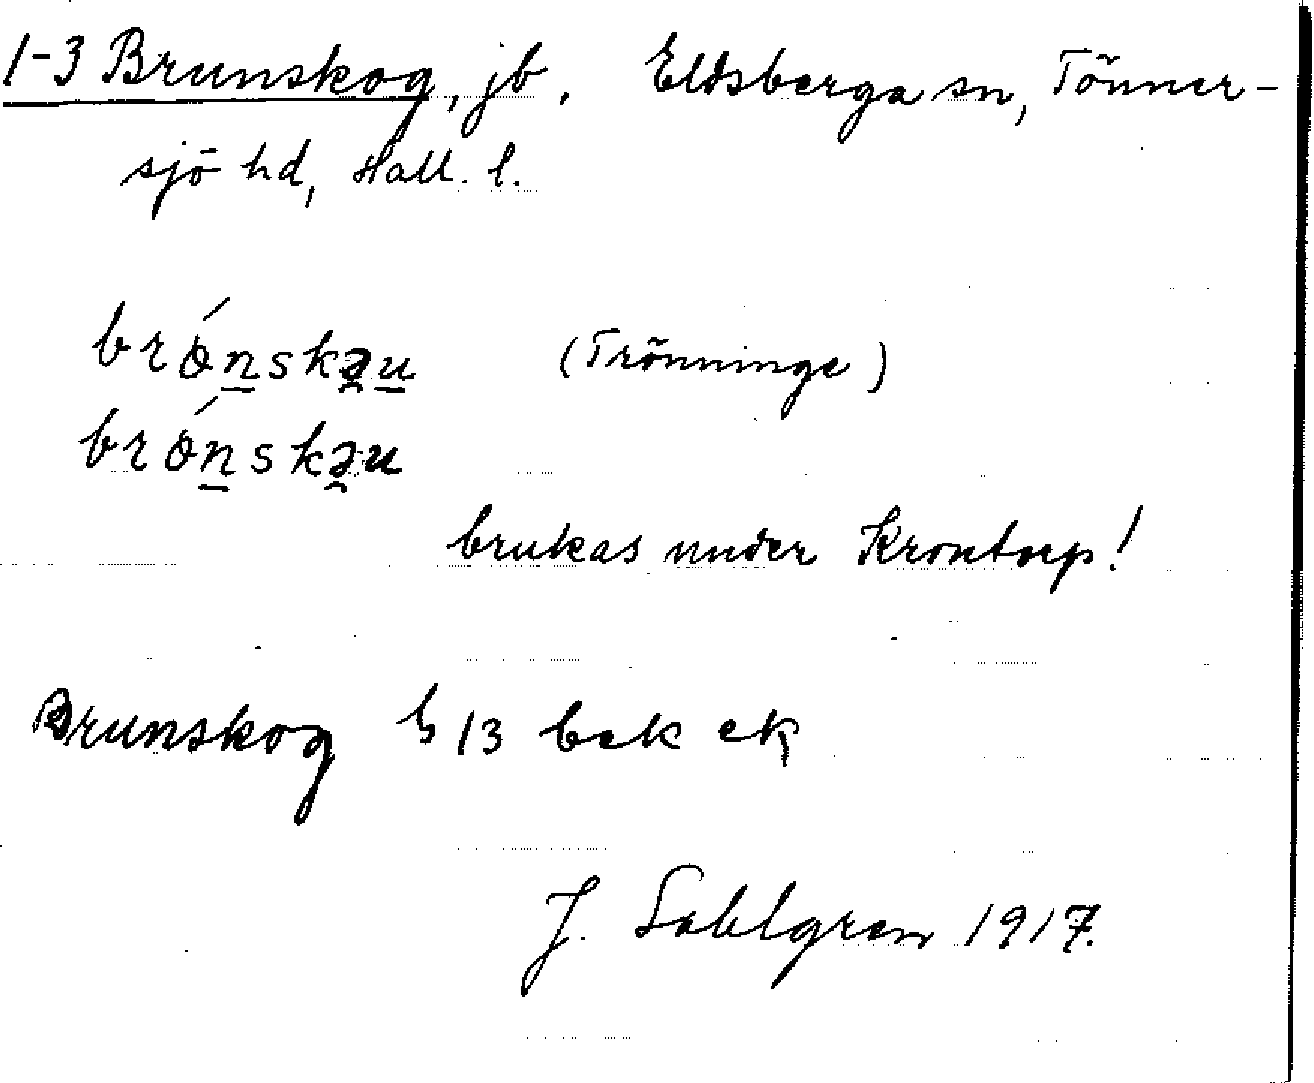 1-3 Brunskog, jb. Eldsberga sn, Tönner-
sjö hd, Hall. l.
brónskəu (Trönninge)
brónskəu
brukas under Krontorp!
Brunskog 13 bek ek
J. Sahlgren 1917.